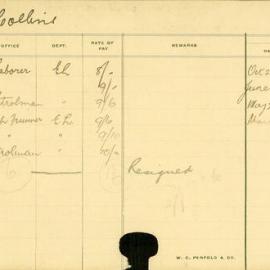 Collins
OFFICE DEPT. RATE OF PAY REMARKS
Laborer EL 8/-
9/- June
trolman " 9/6 May
E L. 9/6
" " 9/10
trolman " 10/-
Resigned
W. C. PENFOLD & CO.